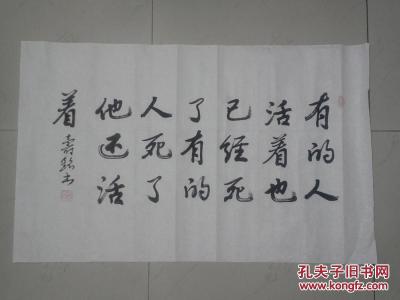 有的人
活着也
已经死
了有的
人死了
他还活
着
孔夫子旧书网
BOOK.KONGFZ.COM